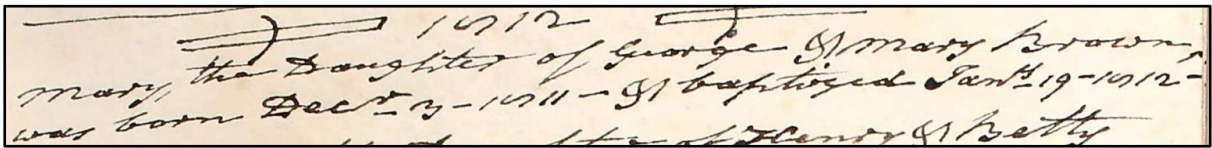 1812
Mary, the Daughter of George & Mary Brown,
was born Decr 3 - 1811 - & baptized Jany 19 - 1812 -
of Henry & Betty